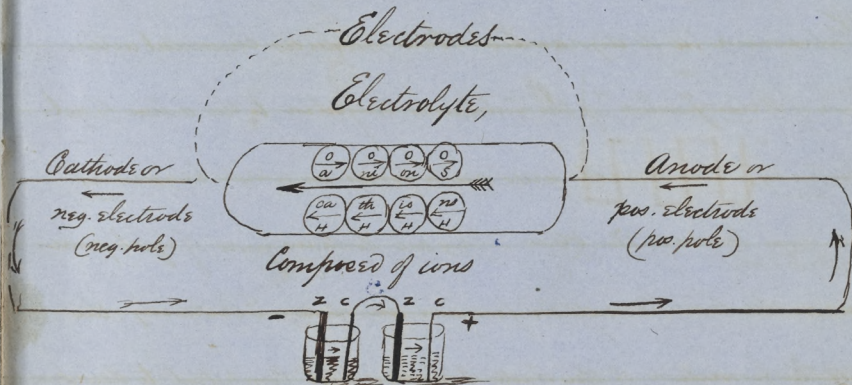 Electrodes
Electrolyte,
O O O O
a ni on s
Cathode or
neg. electrode
(neg. pole)
Anode or
pos. electrode
(pos. pole)
ca th io ns
H H H H
Composed of ions
Z C Z C
- +